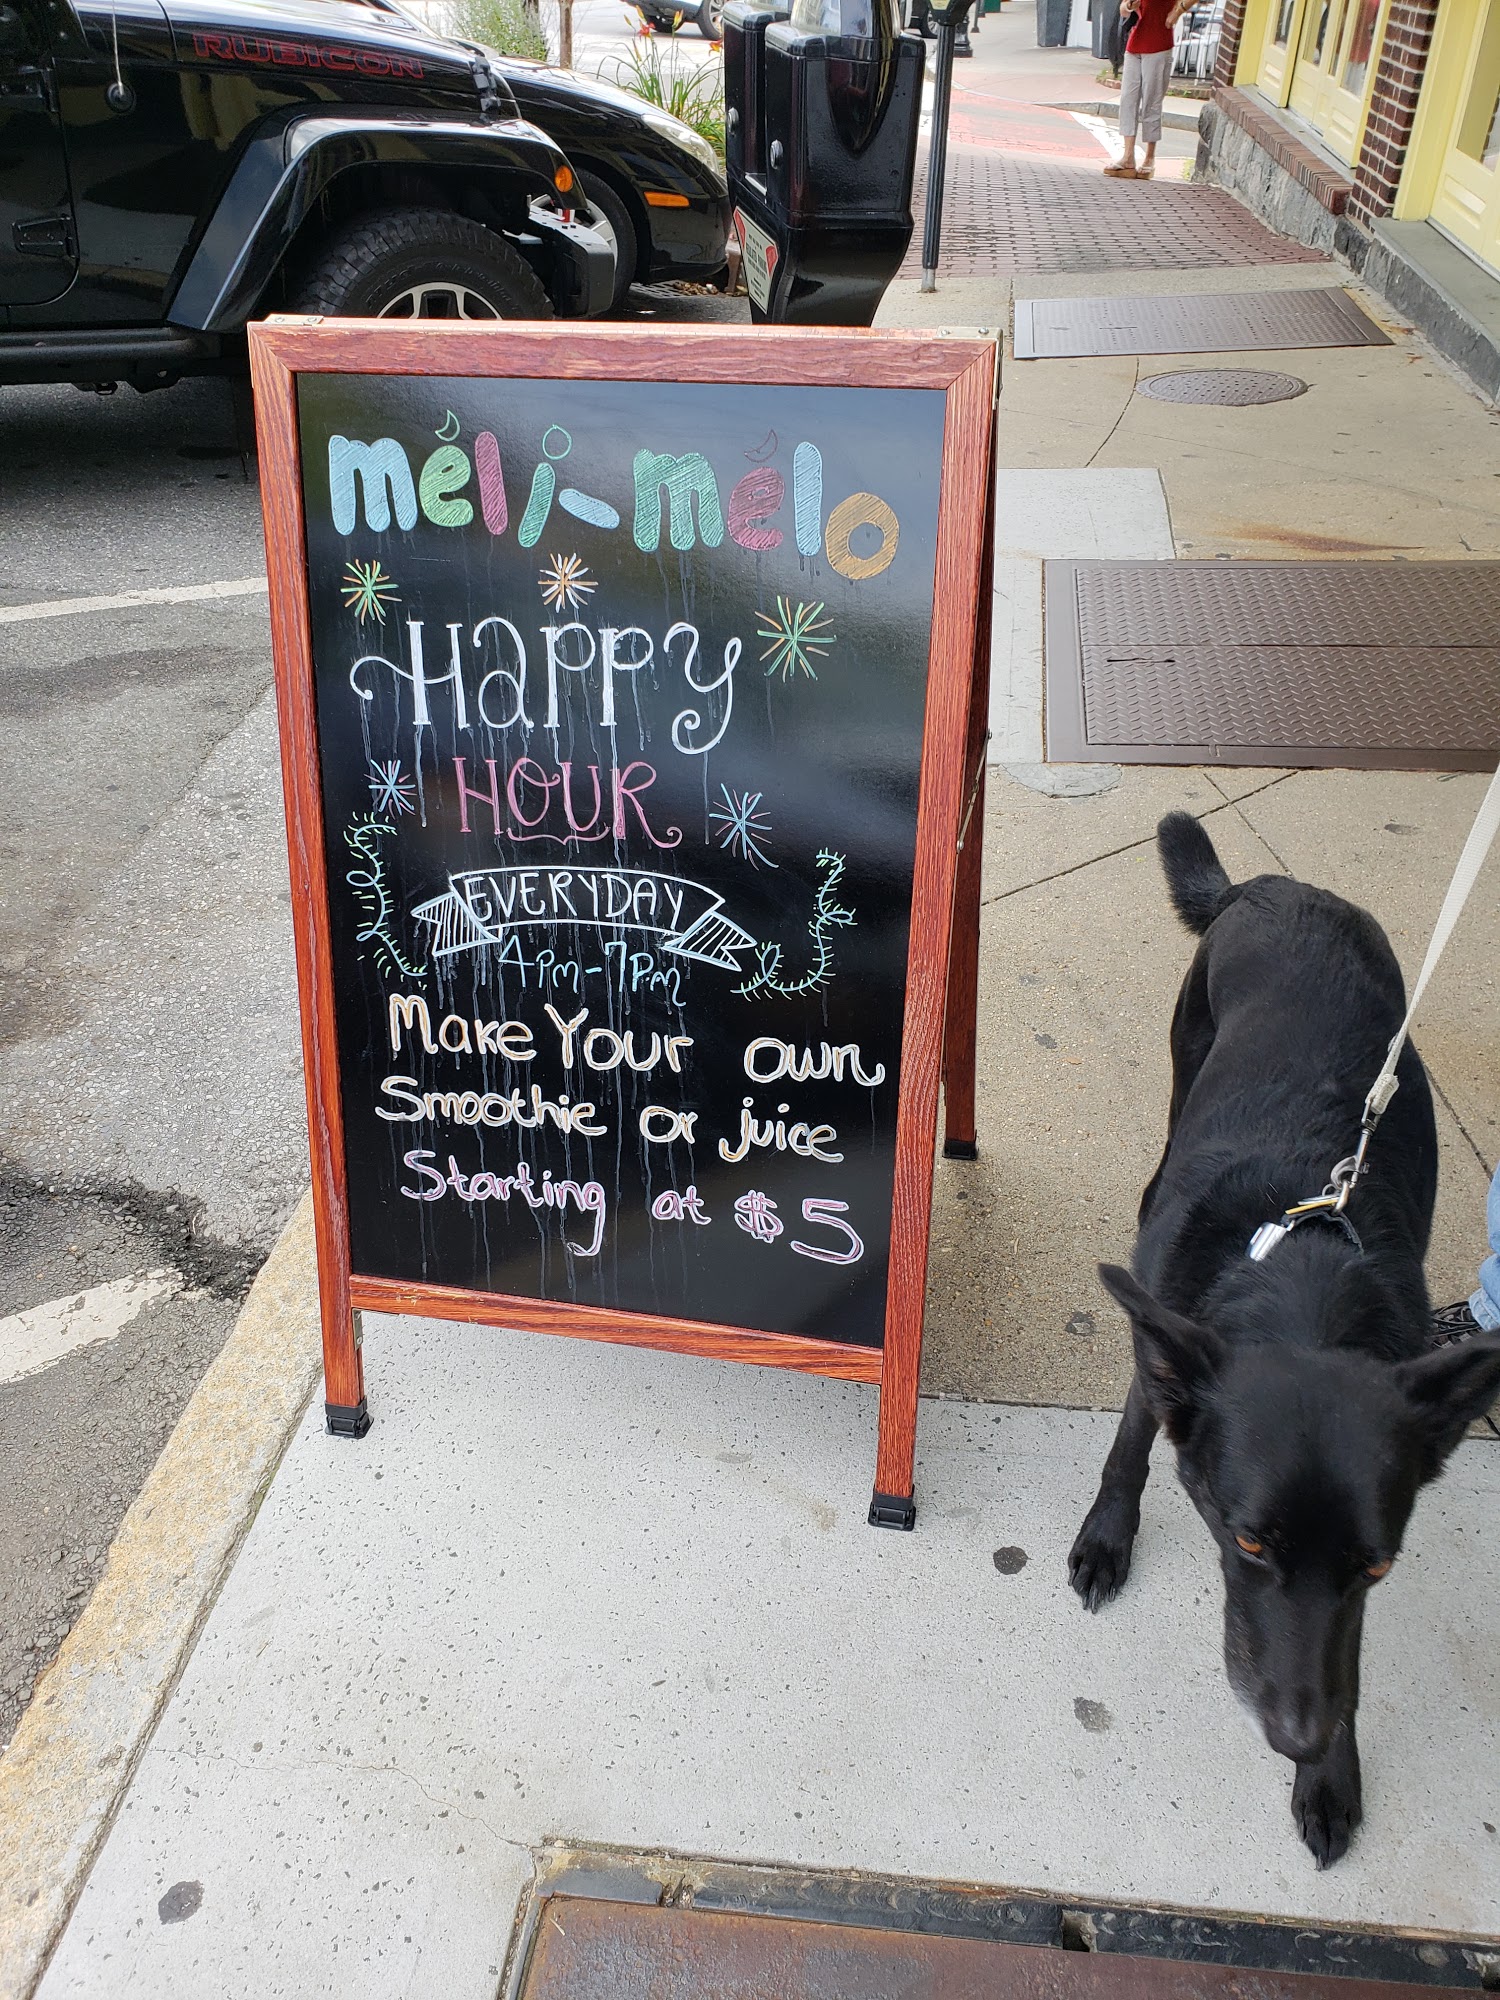 RUBICON
méli-mélo
Happy
HOUR
EVERYDAY
4pm-7pm
Make Your own
Smoothie or juice
Starting at $5